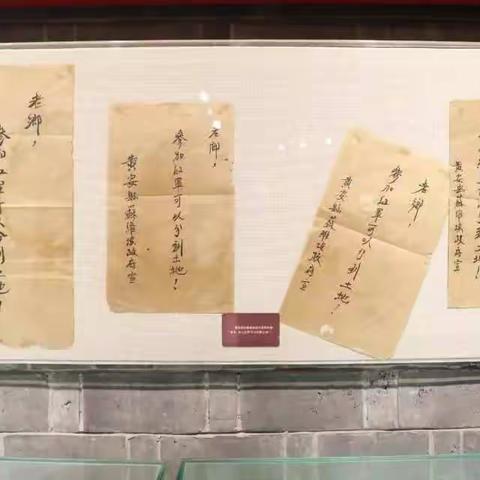 老鄉，
參加红軍可以分到土地！
老鄉，
參加红軍可以分到土地！
黄安縣蘇維埃政府宣
老鄉，
參加红軍可以分到土地！
黄安縣蘇維埃政府宣
黄安縣蘇維埃政府宣